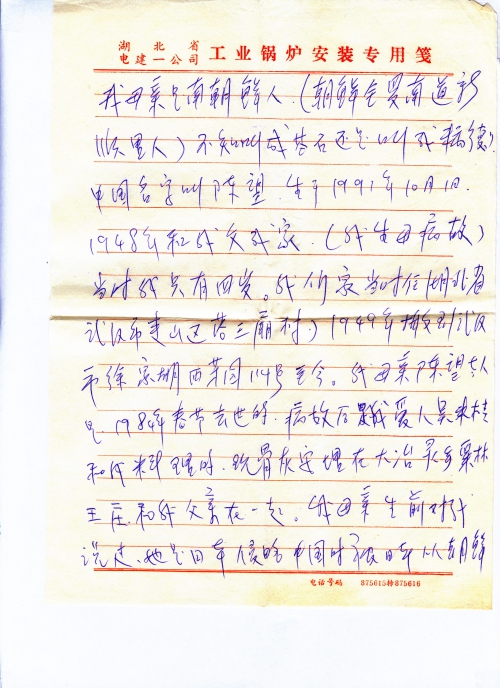 湖北省
电建一公司 工业锅炉安装专用笺
我母亲是南朝鲜人.(朝鲜全罗南道
里人)不知叫成
中国名字叫陈望.生于1991年10月1日.
1948年和我父成家.(我生母病故)
当时我只有四岁。我们家当时住(湖北省
武汉市 山区塔三庙村)1949年搬到武汉
市徐家棚西菜园114号至今。我母亲陈望
是1984年春节去世的.病故后是我爱人吴
和我料理的.现骨灰安埋在大冶灵
王庄.和我父亲在一起。我母亲生前对我
说过.她是日本侵略中国时被日本从朝鲜
电话号码 875615转875616